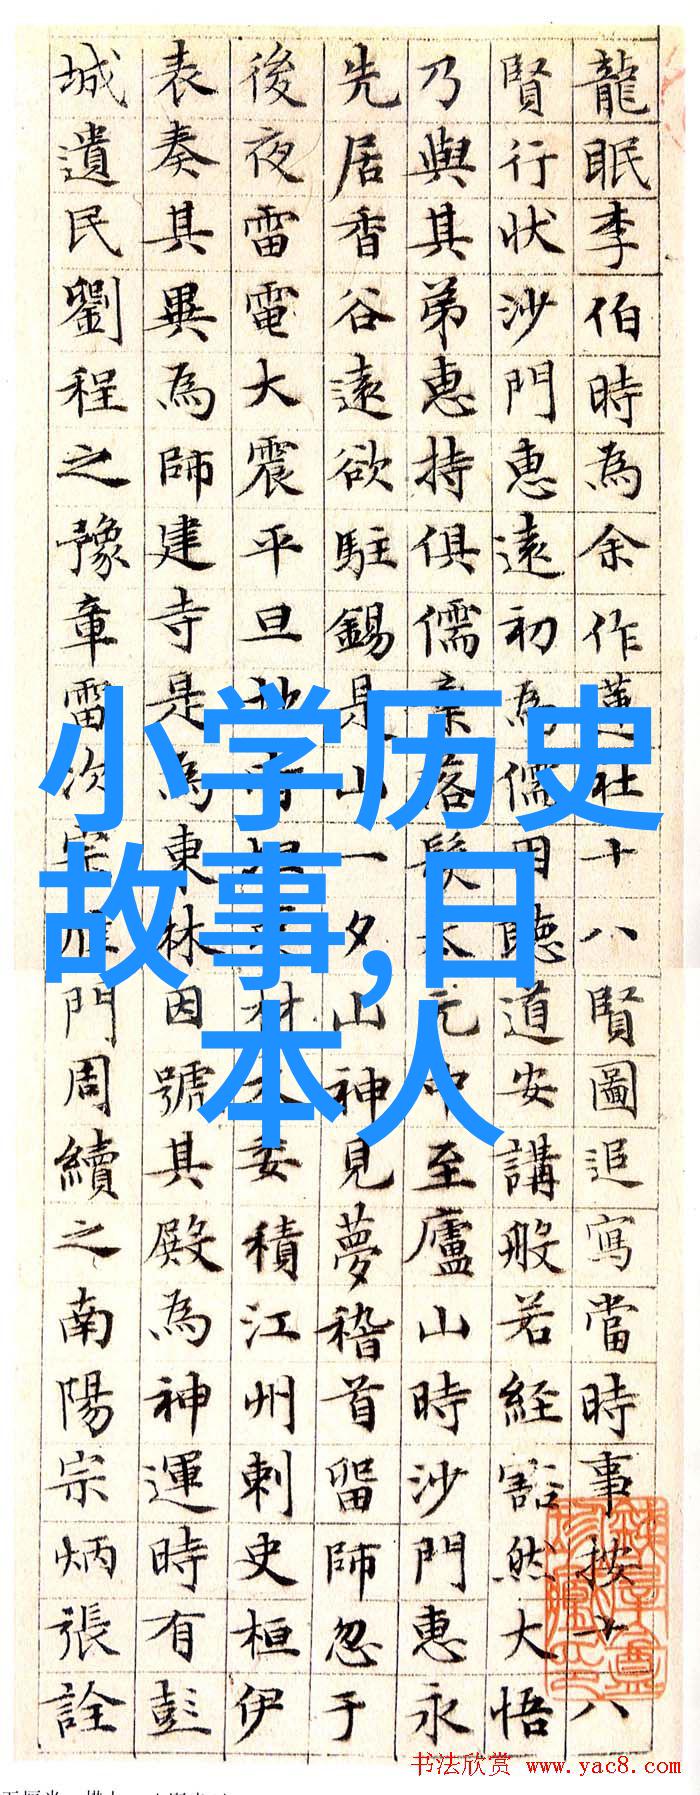 龍眠李伯時為余作蓮社十八賢圖追寫當時事按十八
賢行狀沙門惠遠初為儒因聽道安講般若経豁然大悟
乃與其弟惠持俱儒落髮太元中至廬山時沙門惠永
先居香谷遠欲駐錫是山一夕山神見夢稽首留師忽于
後夜雷電大震平旦材木委積江州刺史桓伊
表奏其異為師建寺是為東林因號其殿為神運時有彭
城遺民劉程之豫章雷次宗雁門周續之南陽宗炳張詮
小学历史
故事,日
本人
书法欣赏 www.yac8.com